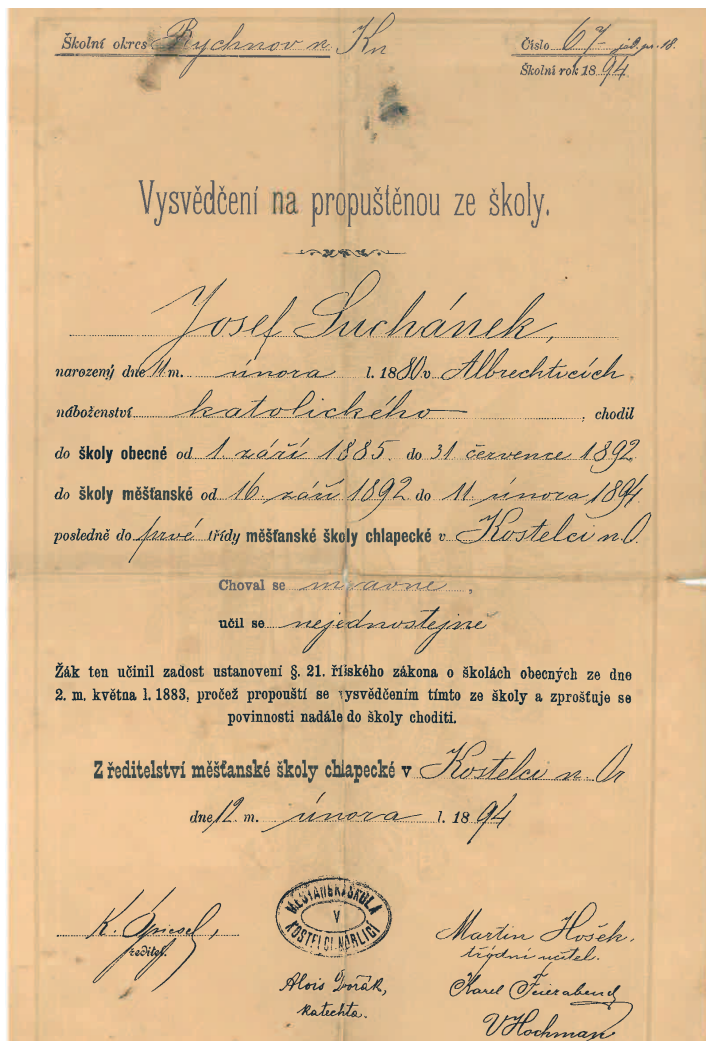 Školní okres Rychnov n. Kn
Číslo 67
Školní rok 18 94
Vysvědčení na propuštěnou ze školy.
Josef Suchánek,
narozený dne 11 m. února l. 1880 v Albrechticích,
náboženství katolického, chodil
do školy obecné od 1. září 1885. do 31 července 1892
do školy měšťanské od 16. září 1892 do 11 února 1894
posledně do prvé třídy měšťanské školy chlapecké v Kostelci n. O.
Choval se mravně,
učil se nejednostejně
Žák ten učinil zadost ustanovení §. 21. říšského zákona o školách obecných ze dne
2. m. května l. 1883, pročež propouští se vysvědčením tímto ze školy a zprošťuje se
povinnosti nadále do školy choditi.
Z ředitelství měšťanské školy chlapecké v Kostelci n. Or
dne 12. m. února l. 18 94
MĚŠŤANSKÁ ŠKOLA
V
KOSTELCI N. ORLICÍ
K.
ředitel.
Martin Hošek.
třídní učitel.
Alois
katecheta.
Karel Feierabend
V Hochman